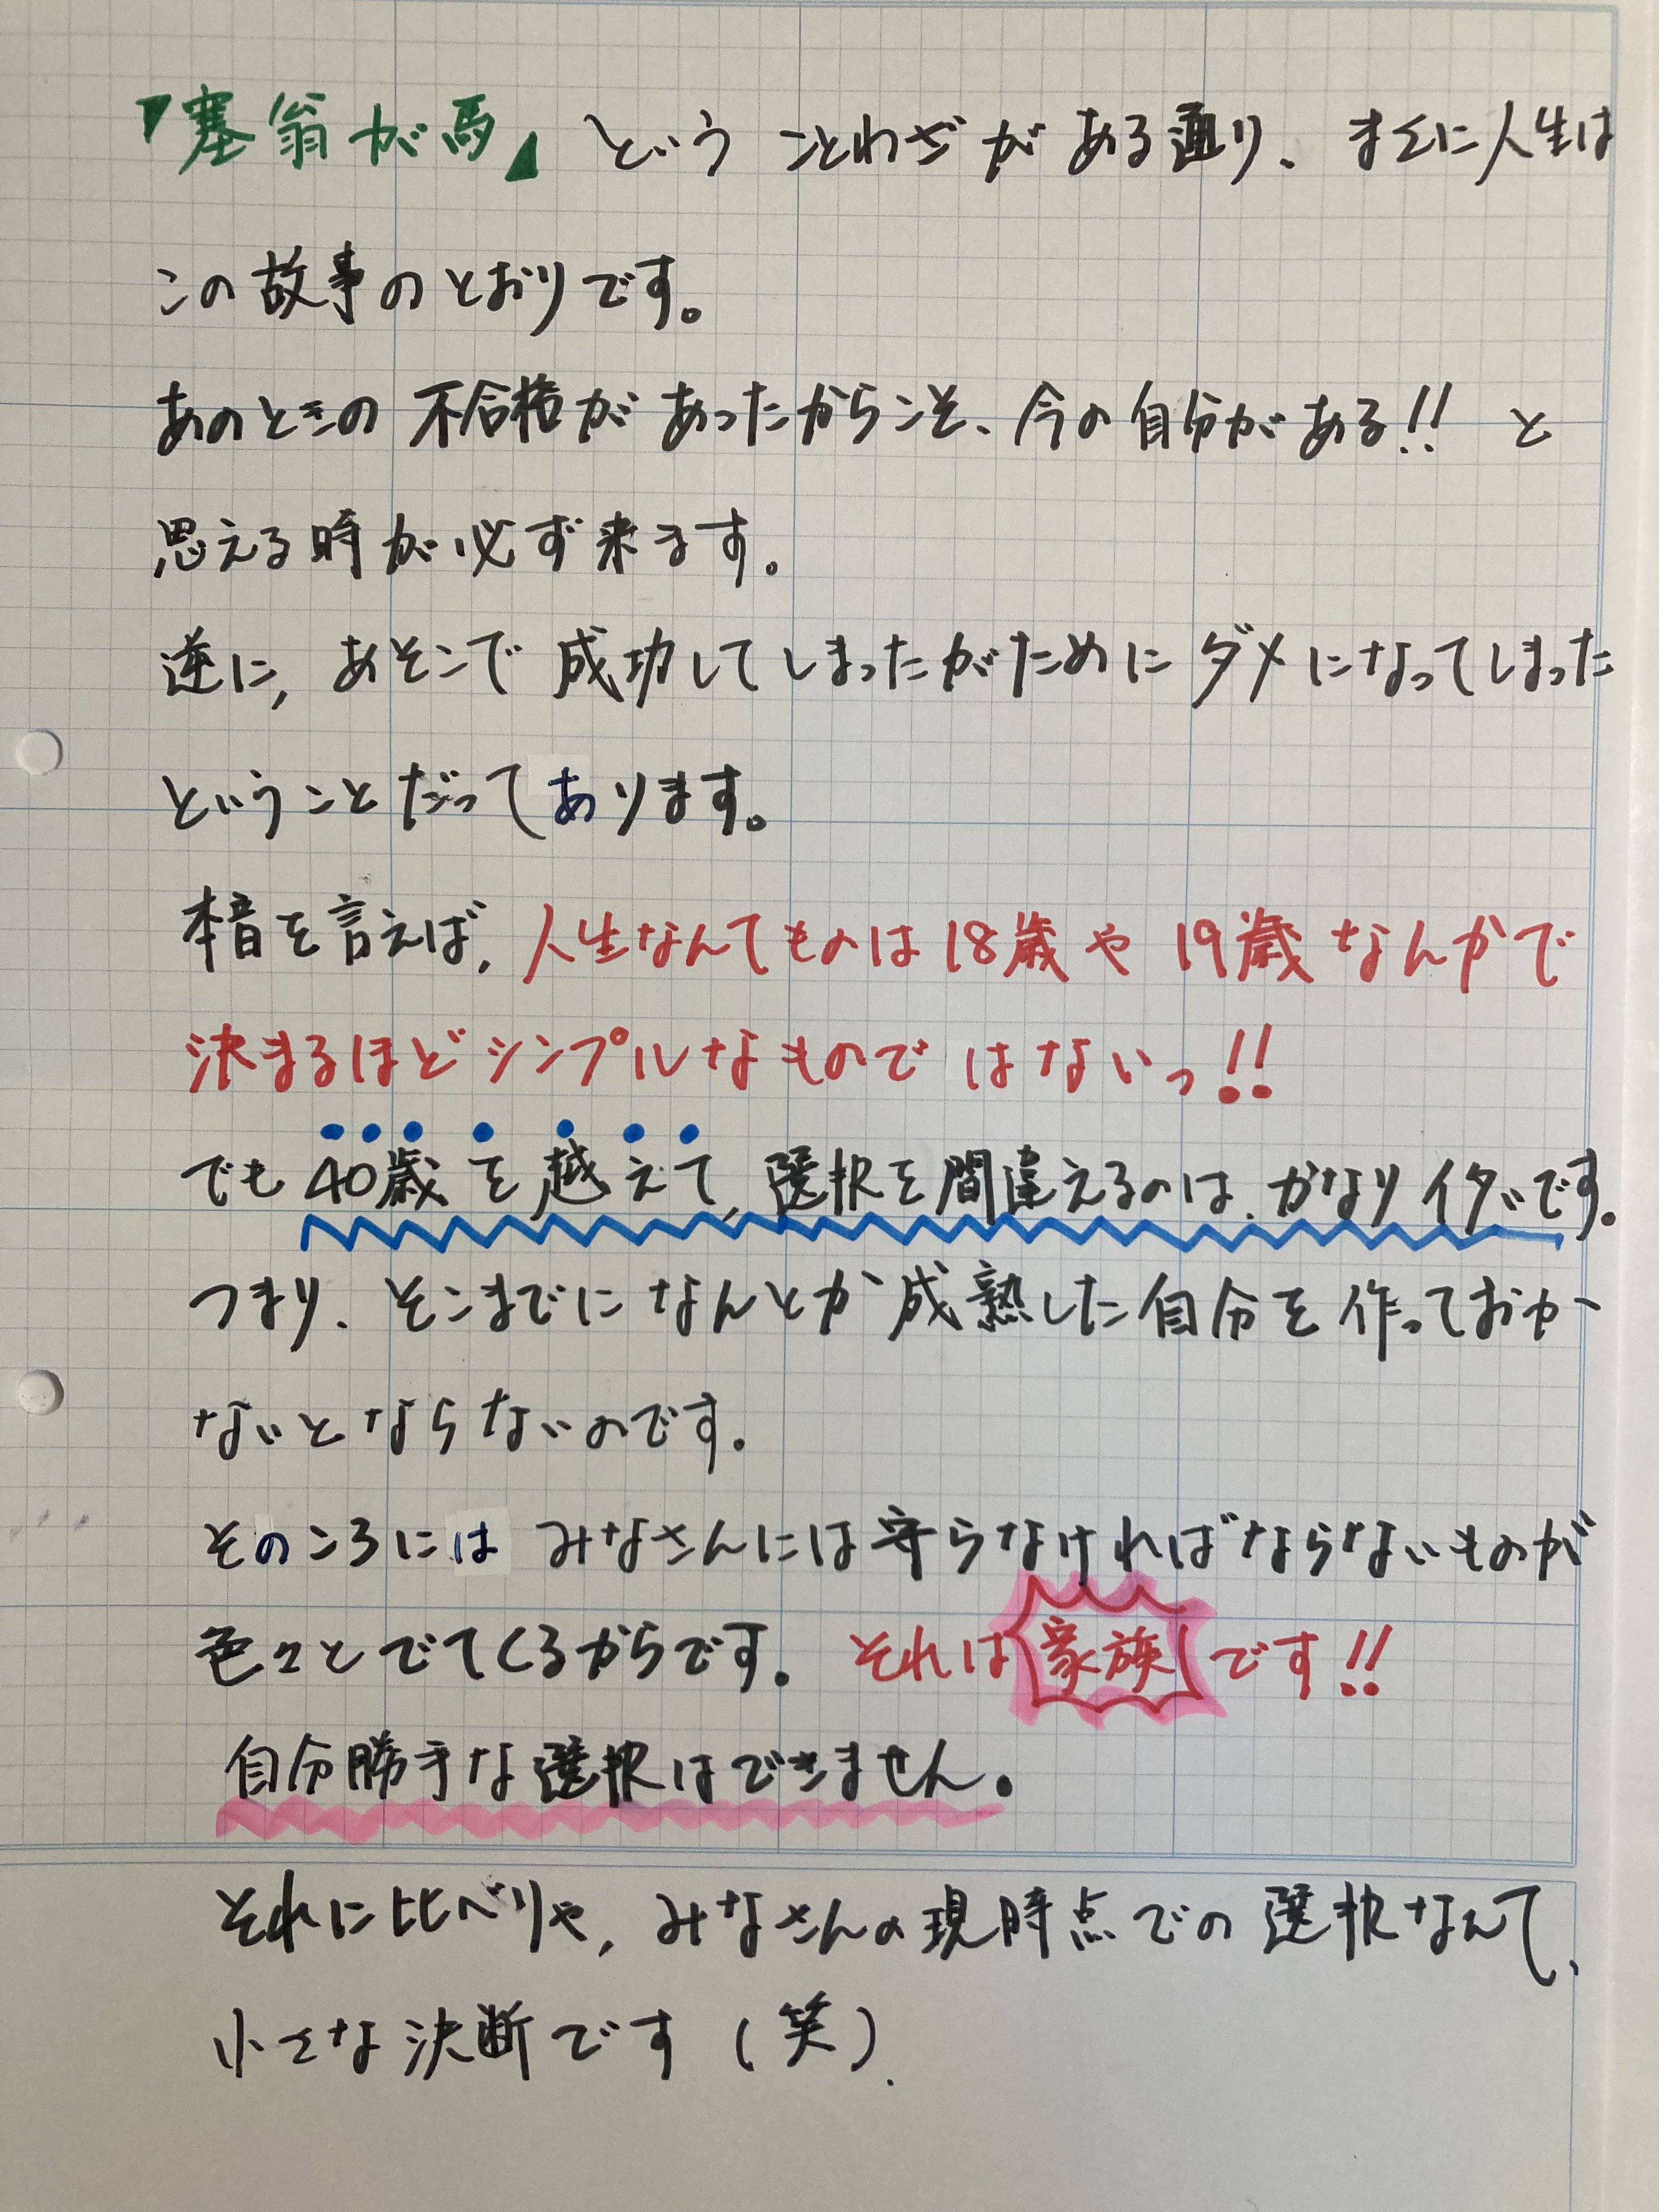 『塞翁が馬』ということわざがある通り、まさに人生は
この故事のとおりです。
あのときの不合格があったからこそ、今の自分がある!! と
思える時が必ず来ます。
逆に、あそこで成功してしまったがためにダメになってしまった
ということだってあります。
本音を言えば、人生なんてものは18歳や19歳なんかで
決まるほどシンプルなものではないっ!!
でも40歳を越えて、選択を間違えるのは、かなりイタいです。
つまり、そこまでになんとか成熟した自分を作っておか
ないとならないのです。
そのころには みなさんには守らなければならないものが
色々とでてくるからです。それは家族です!!
自分勝手な選択はできません。
それに比べりゃ、みなさんの現時点での選択なんて、
小さな決断です(笑).